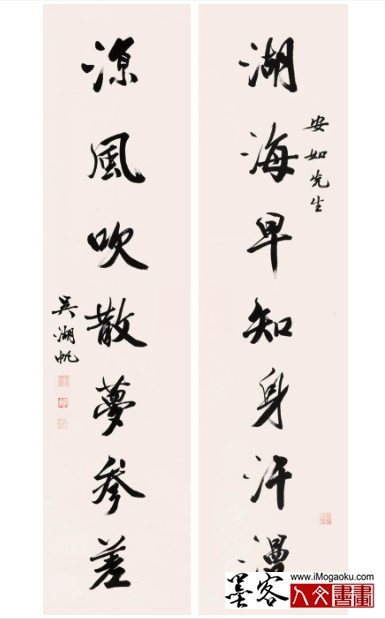 湖海早知身汗漫
安如先生
凉風吹散夢參差
吳湖帆
墨客
www.iMogaoku.com
人文書畫